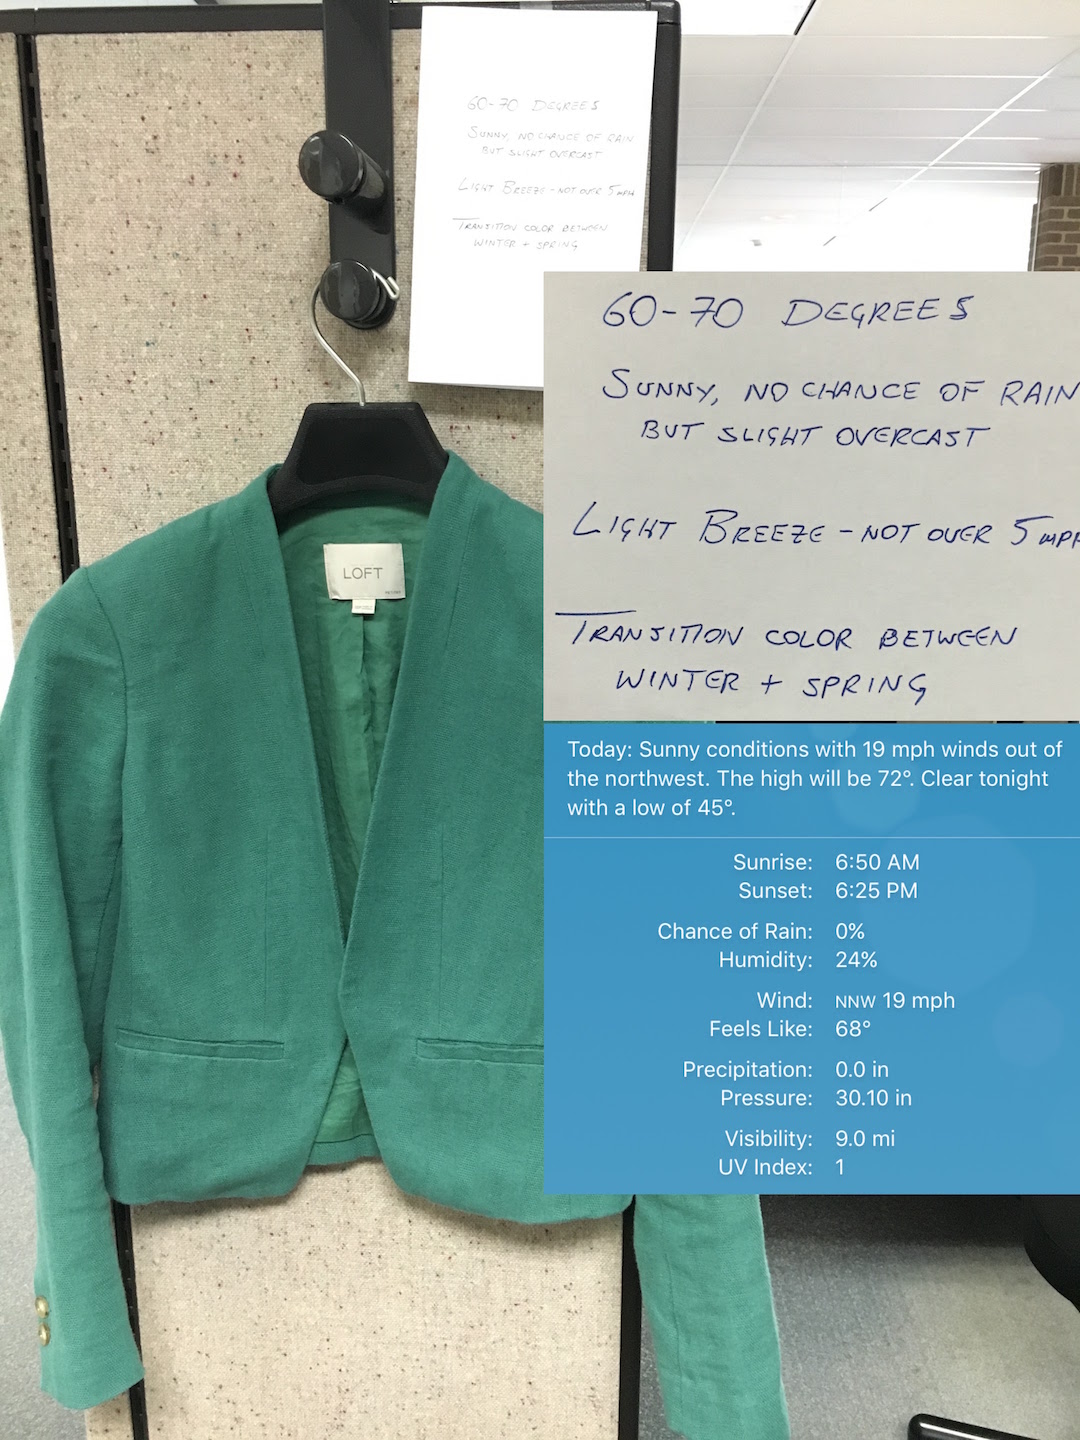 60-70 DEGREES
SUNNY, NO CHANCE OF RAIN
BUT SLIGHT OVERCAST
LIGHT BREEZE - NOT OVER 5 MPH
TRANSITION COLOR BETWEEN
WINTER + SPRING
60-70 DEGREES
SUNNY, NO CHANCE OF RAIN
BUT SLIGHT OVERCAST
LIGHT BREEZE - NOT OVER 5 MPH
TRANSITION COLOR BETWEEN
WINTER + SPRING
LOFT
Today: Sunny conditions with 19 mph winds out of
the northwest. The high will be 72°. Clear tonight
with a low of 45°.
Sunrise: 6:50 AM
Sunset: 6:25 PM
Chance of Rain: 0%
Humidity: 24%
Wind: NNW 19 mph
Feels Like: 68°
Precipitation: 0.0 in
Pressure: 30.10 in
Visibility: 9.0 mi
UV Index: 1